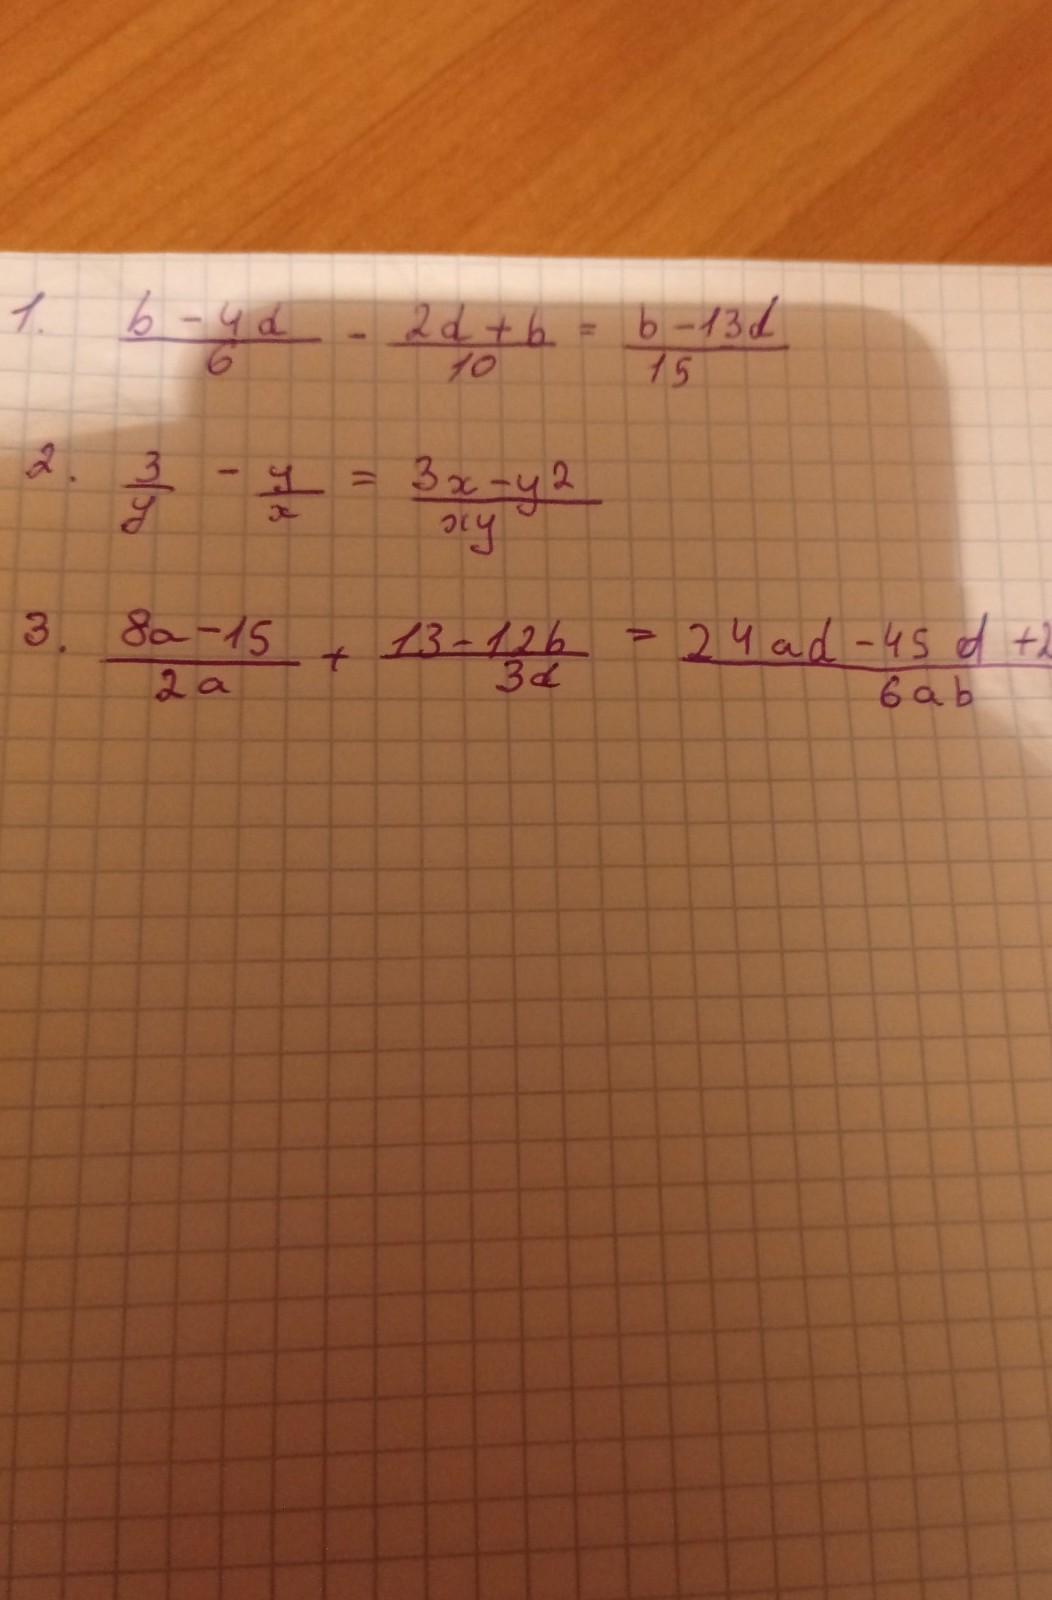 1. (b - 4d)/6 - (2d + b)/10 = (b - 13d)/15
2. 3/y - y/x = (3x - y2)/(xy)
3. (8a - 15)/(2a) + (13 - 12b)/(3d) = (24ad - 45d + 2)/(6ab)